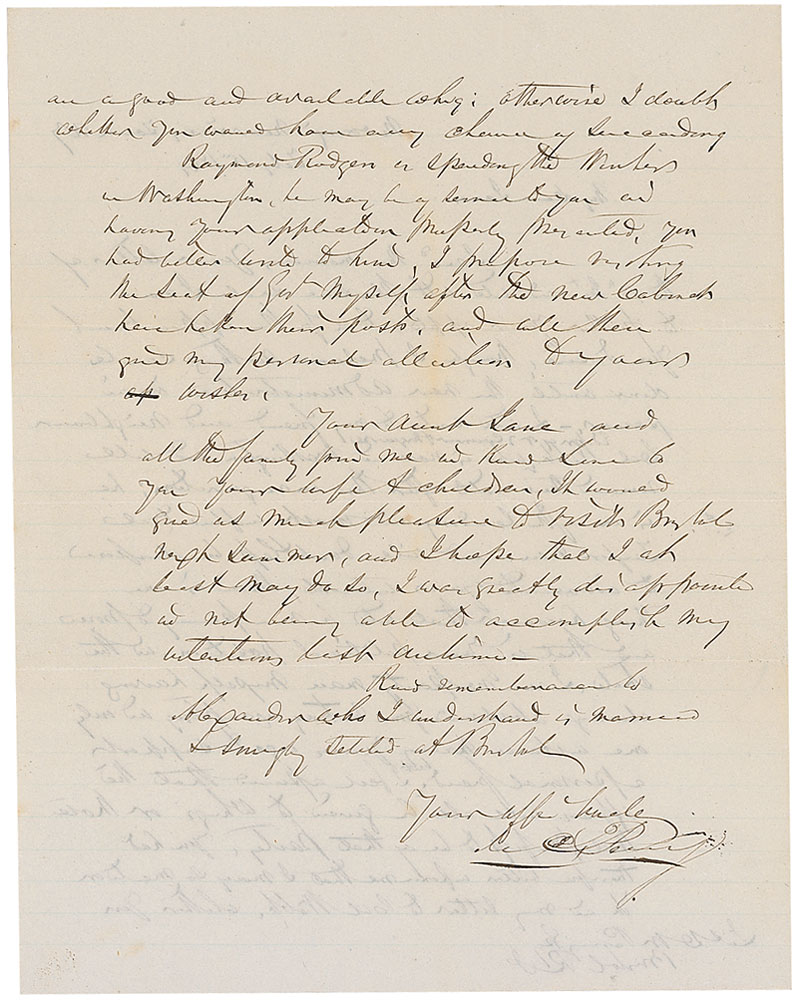 are a good and available whig; otherwise I doubt
whether you would have any chance of succeeding
Raymond Rodgers is spending the Winter
in Washington, he may be of service to you in
having your application properly presented, you
had better write to him, I propose visiting
the Seat of Govt myself, after the new Cabinet
have taken their posts, and will then
give my personal attention to your
wishes.
Your Aunt Jane and
all the family join me in Kind Love to
you your wife & children, It would
give us much pleasure to visit Bristol
next summer, and I hope that I at
least may do so, I was greatly disappointed
in not being able to accomplish my
intentions last autumn—
Kind remembrances to
Alexander who I understand is married
& snugly settled at Bristol
Your affe Uncle
M C Perry